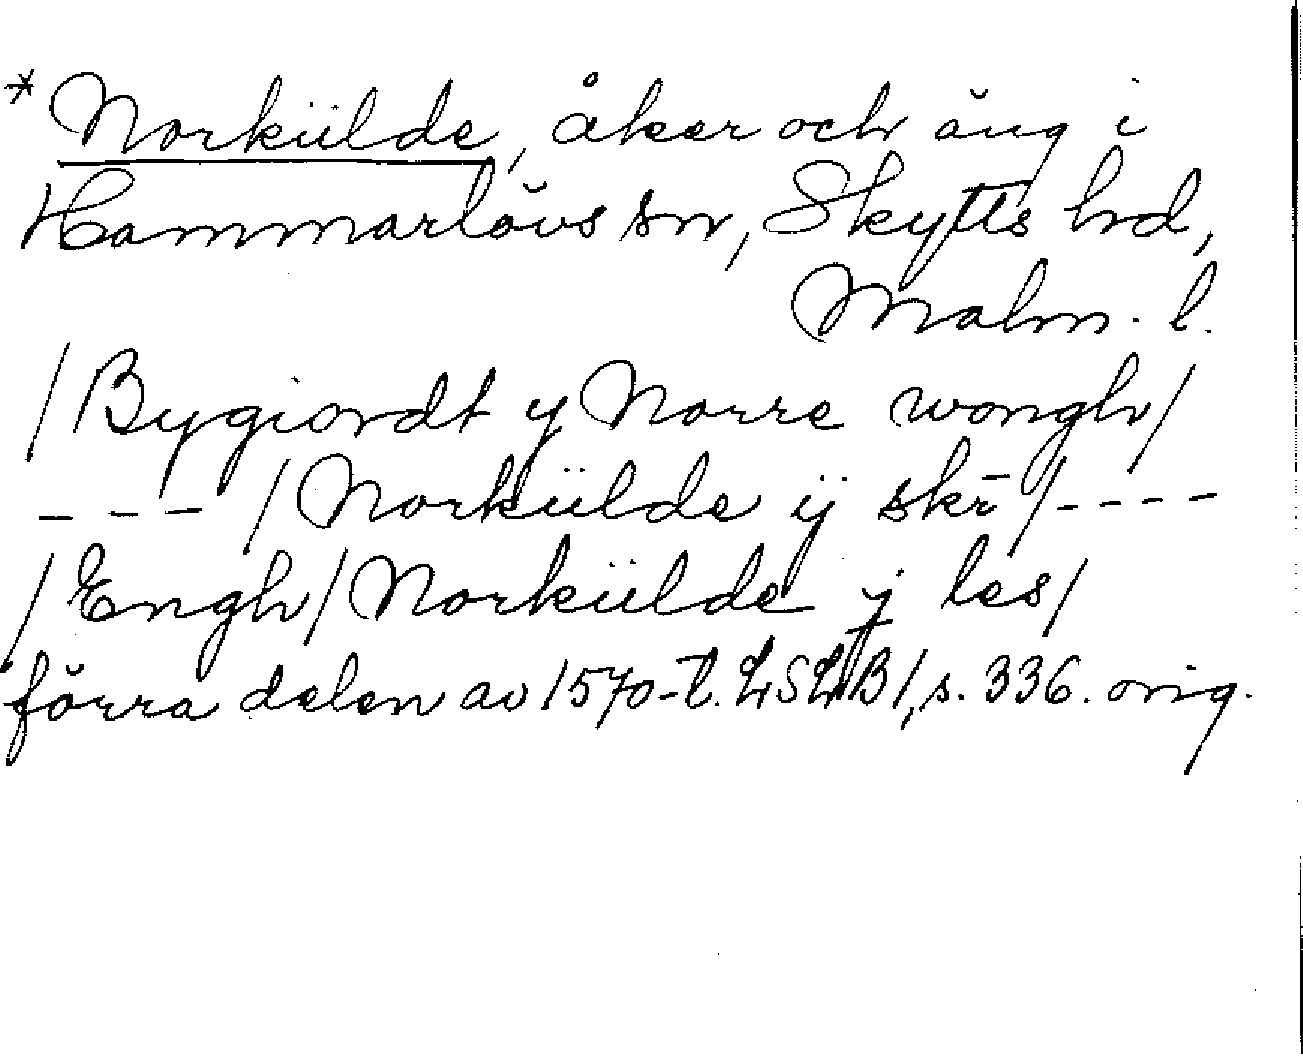 * Norkülde, åker och äng i
Hammarlövs sn, Skytts hd,
Malm. l.
/Bygiordt y Norre wongh/
--- /Norkülde ij skr̄/----
/Engh/Norkülde j les/
förra delen av 1570-t. LSLB 1, s. 336. orig.